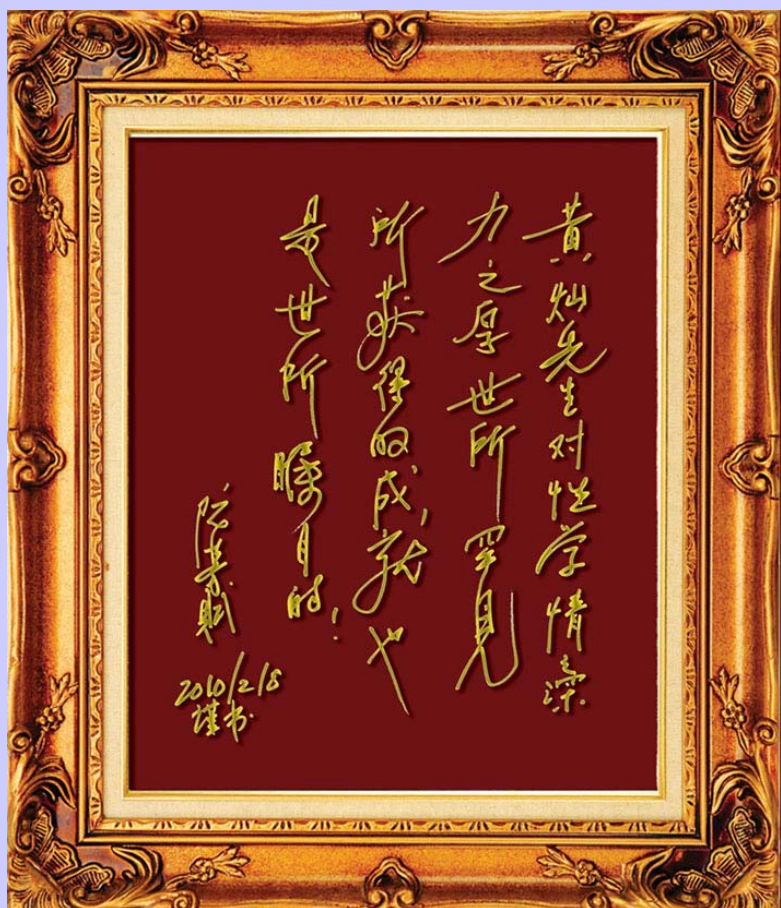 黄灿先生对性学情之深
力之厚世所罕见
所获得的成就也
是世所瞩目的!
阮芳赋
2010/2/8
谨书